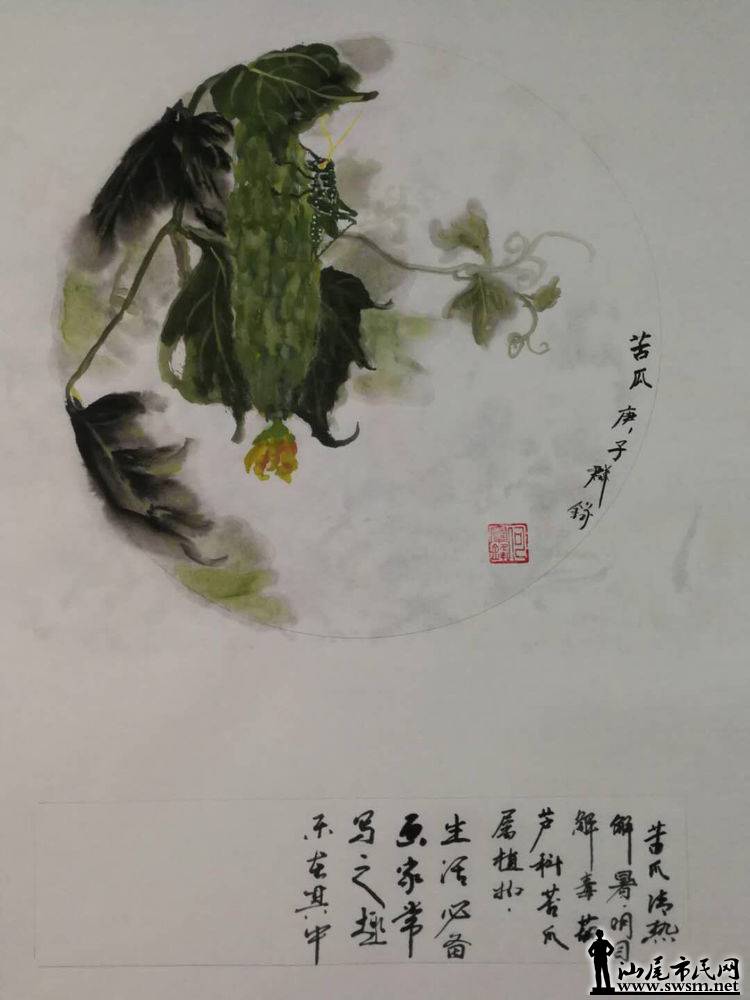 苦瓜 庚子 群
苦瓜清热
解暑.明目
解毒葫
芦科苦瓜
属植物.
生活必备
画家常
写之趣
乐在其中
汕尾市民网
www.swsm.net